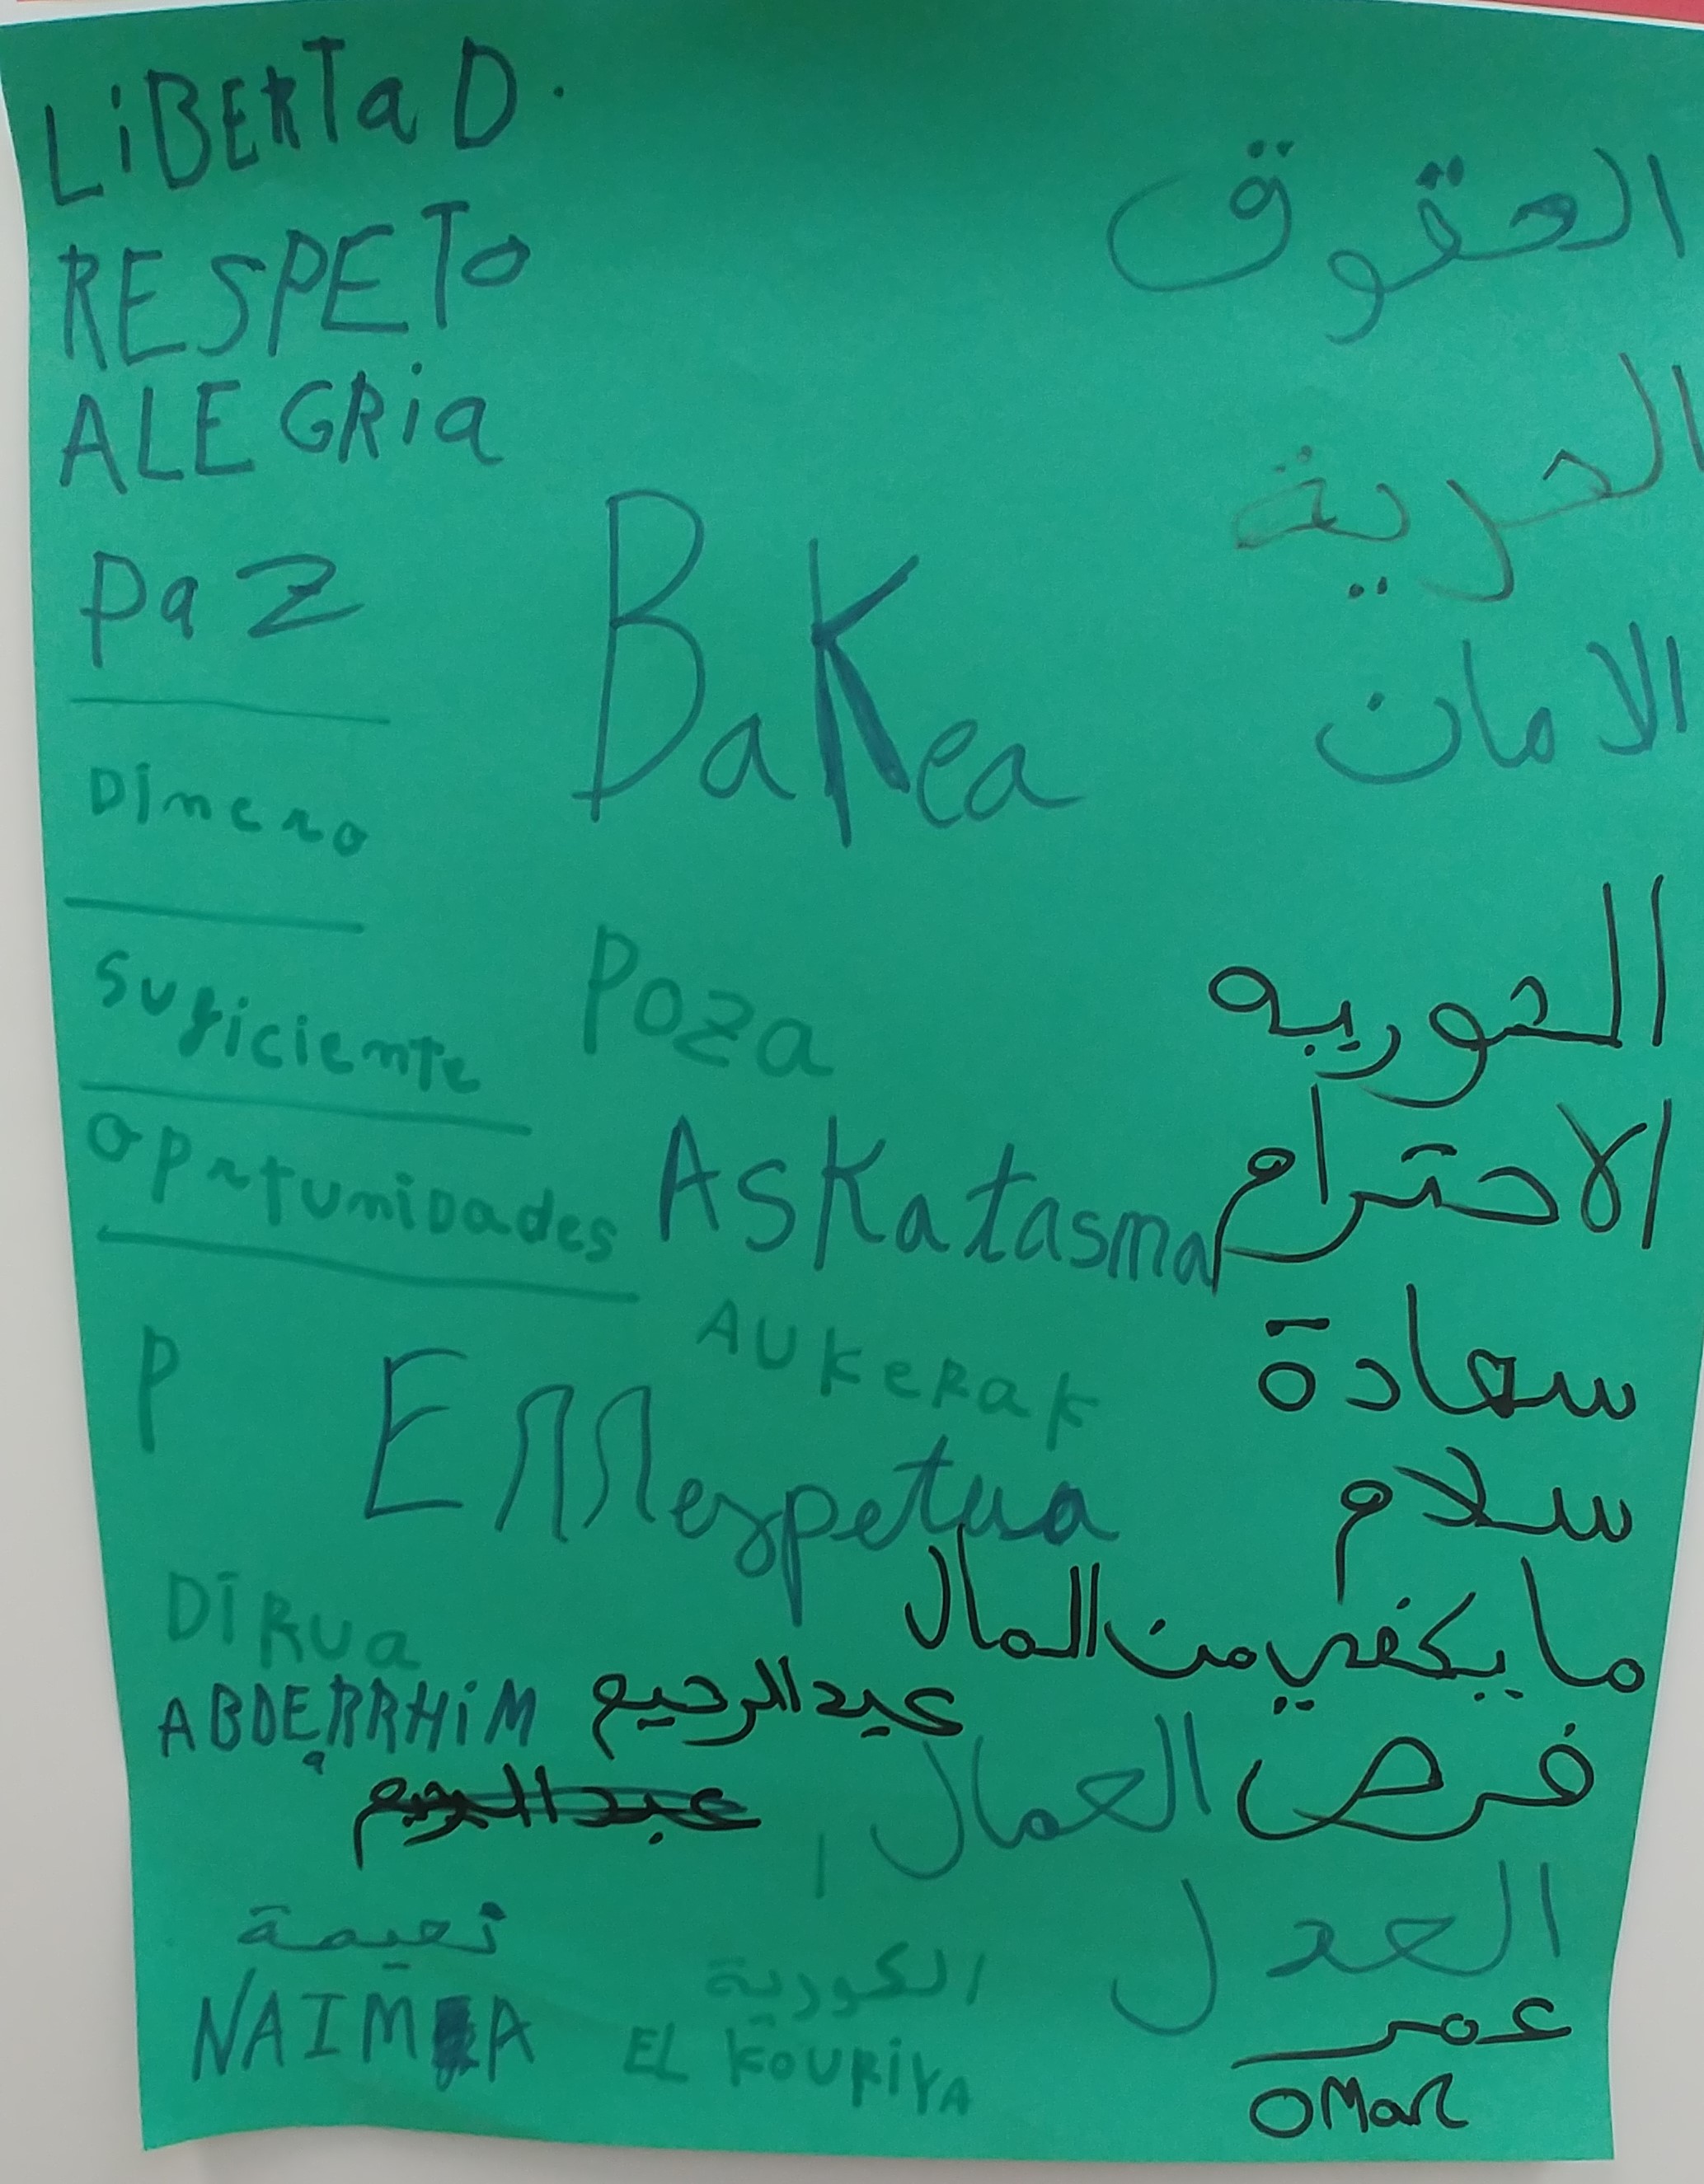 LiBERTaD.
RESPETO
ALEGRia
Paz
Dinero
Suficiente
Oprtunidades
P
BaKea
Poza
ASKatasma
AUKeRak
EMespetua
DiRua
الحقوق
الحرية
الامان
الحوريه
الاحترام
سعادة
سلام
ما يكفي من المال
فرص العمال
العدل
ABDERRHiM عبد الرحيم
نعيمة
NAIMA
الكورية
EL KOURiYA
عمر
OMar